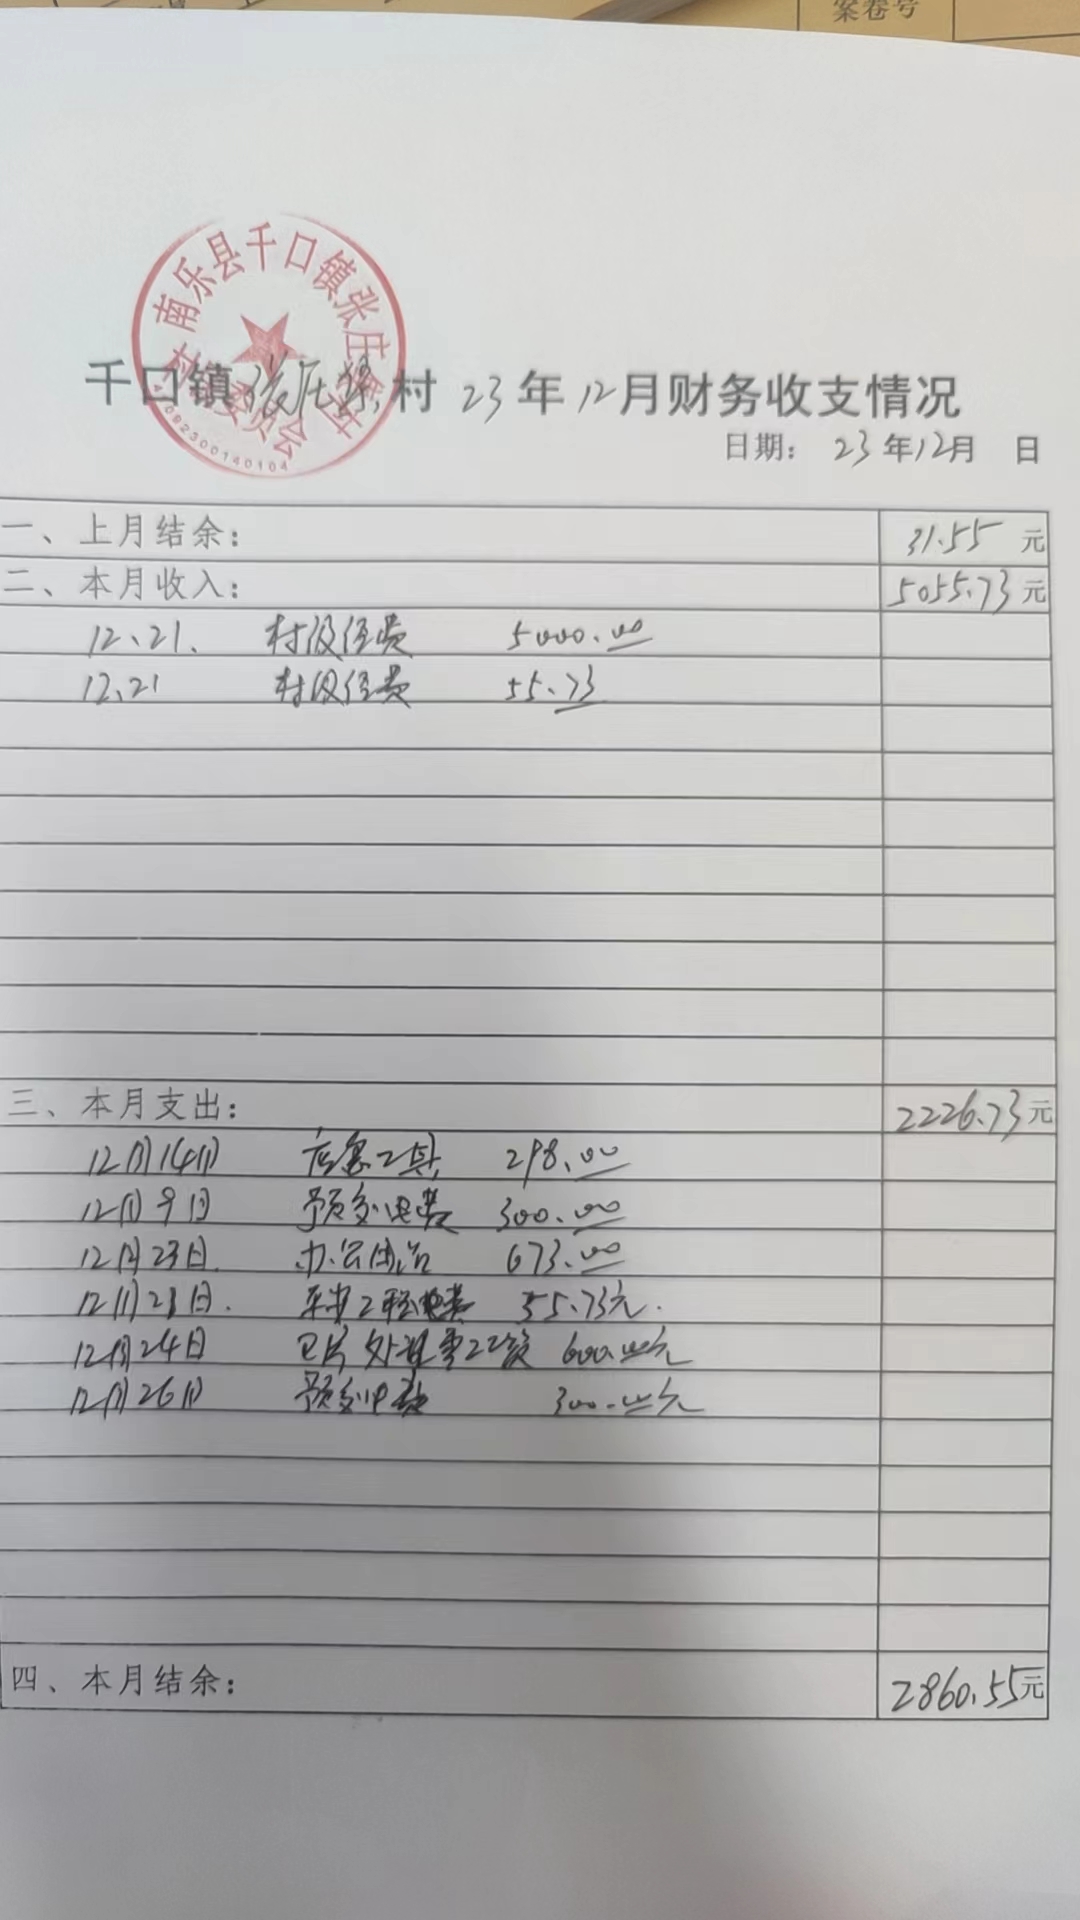 案卷号
南乐县千口镇张庄
村民委员会
4109230014010​4
千口镇张庄 村 23 年 12 月财务收支情况
日期： 23 年 12 月 日
一、上月结余： 31.55 元
二、本月收入： 5055.73 元
12.21. 村级经费 5000.00
12.21 村级经费 55.73
三、本月支出： 2226.73 元
12月14日 应急工具 298.00
12月9日 预交电费 300.00
12月23日. 办公用 673.00
12月23日. 工程电费 55.73元.
12月24日 卫片处理 工资 600.00元
12月26日 预交电费 300.00元
四、本月结余： 2860.55元